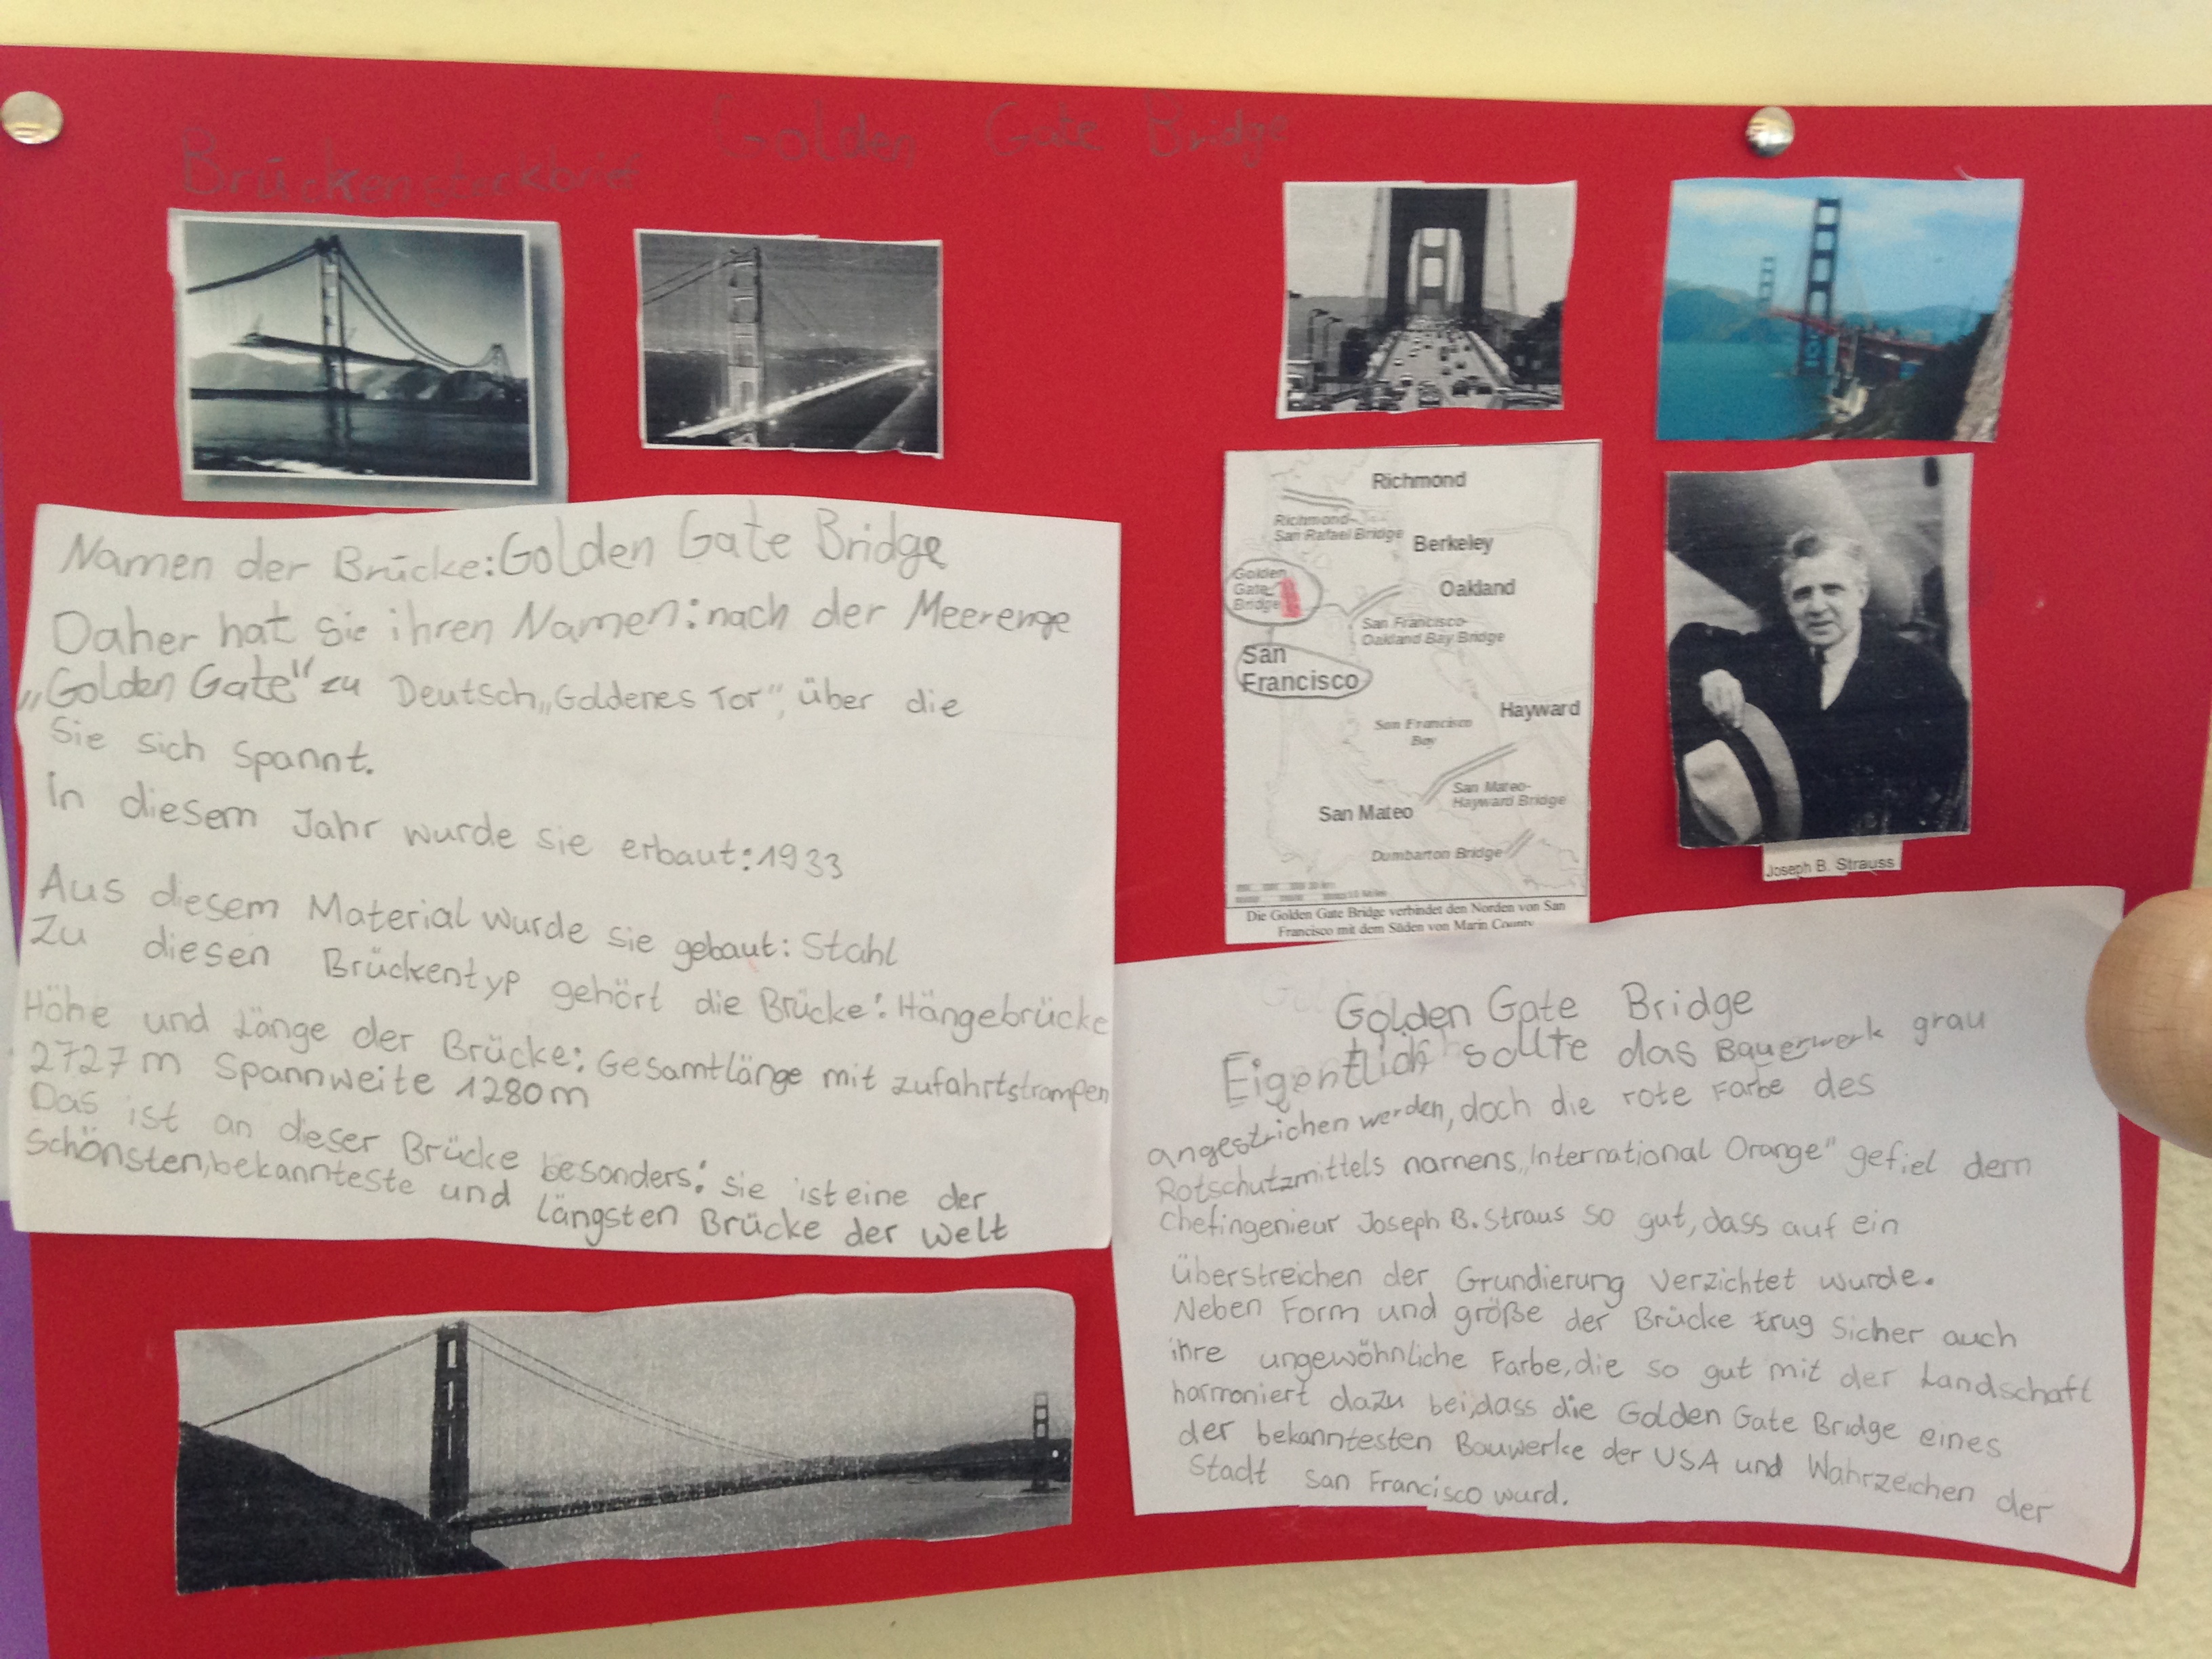 Brückensteckbrief
Golden Gate Bridge
Namen der Brücke: Golden Gate Bridge
Daher hat sie ihren Namen: nach der Meerenge
„Golden Gate" zu Deutsch „Goldenes Tor", über die
sie sich spannt.
In diesem Jahr wurde sie erbaut: 1933
Aus diesem Material wurde sie gebaut: Stahl
Zu diesen Brückentyp gehört die Brücke: Hängebrücke
Höhe und Länge der Brücke: Gesamtlänge mit zufahrtstrampen
2727 m Spannweite 1280 m
Das ist an dieser Brücke besonders: sie ist eine der
schönsten, bekannteste und längsten Brücke der Welt
Richmond
Richmond-
San Rafael Bridge
Berkeley
Golden
Gate
Bridge
Oakland
San Francisco-
Oakland Bay Bridge
San
Francisco
Hayward
San Francisco
Bay
San Mateo-
Hayward Bridge
San Mateo
Dumbarton Bridge
Die Golden Gate Bridge verbindet den Norden von San
Francisco mit dem Süden von Marin County
Joseph B. Strauss
Golden Gate Bridge
Eigentlich sollte das Bauerwerk grau
angestrichen werden, doch die rote Farbe des
Rotschutzmittels namens „International Orange" gefiel dem
Chefingenieur Joseph B. Straus so gut, dass auf ein
überstreichen der Grundierung verzichtet wurde.
Neben Form und größe der Brücke trug sicher auch
ihre ungewöhnliche Farbe, die so gut mit der Landschaft
harmoniert dazu bei, dass die Golden Gate Bridge eines
der bekanntesten Bauwerke der USA und Wahrzeichen der
Stadt San Francisco wurd.